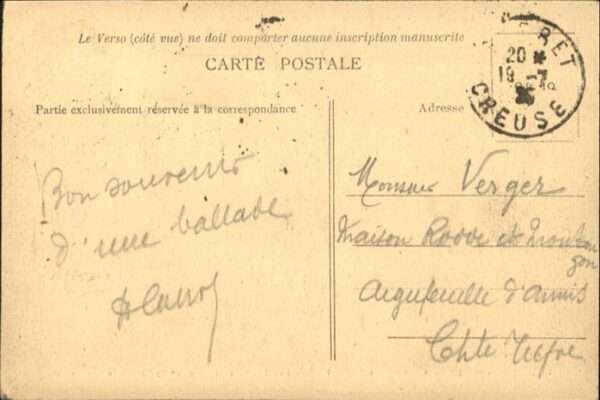 Le Verso (côté vue) ne doit comporter aucune inscription manuscrite
CARTE POSTALE
RET
20
19 -7
CREUSE
Partie exclusivement réservée à la correspondance
Adresse
Bon souvenir
d'une ballade
Monsieur Verger
Maison et
Aigrefeuille d'Aunis
Chte